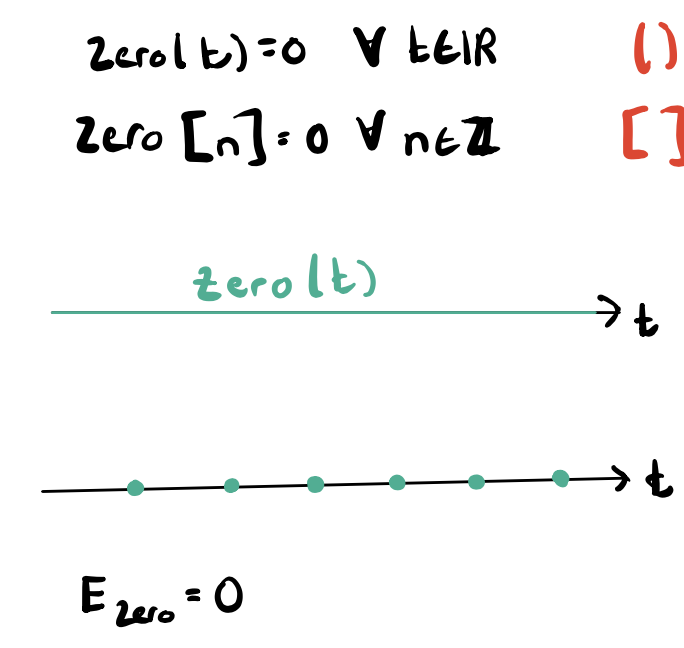 zero(t)=0 ∀ t∈ℝ ( )
zero[n]=0 ∀ n∈ℤ [ ]
zero(t)
t
t
E_zero = 0